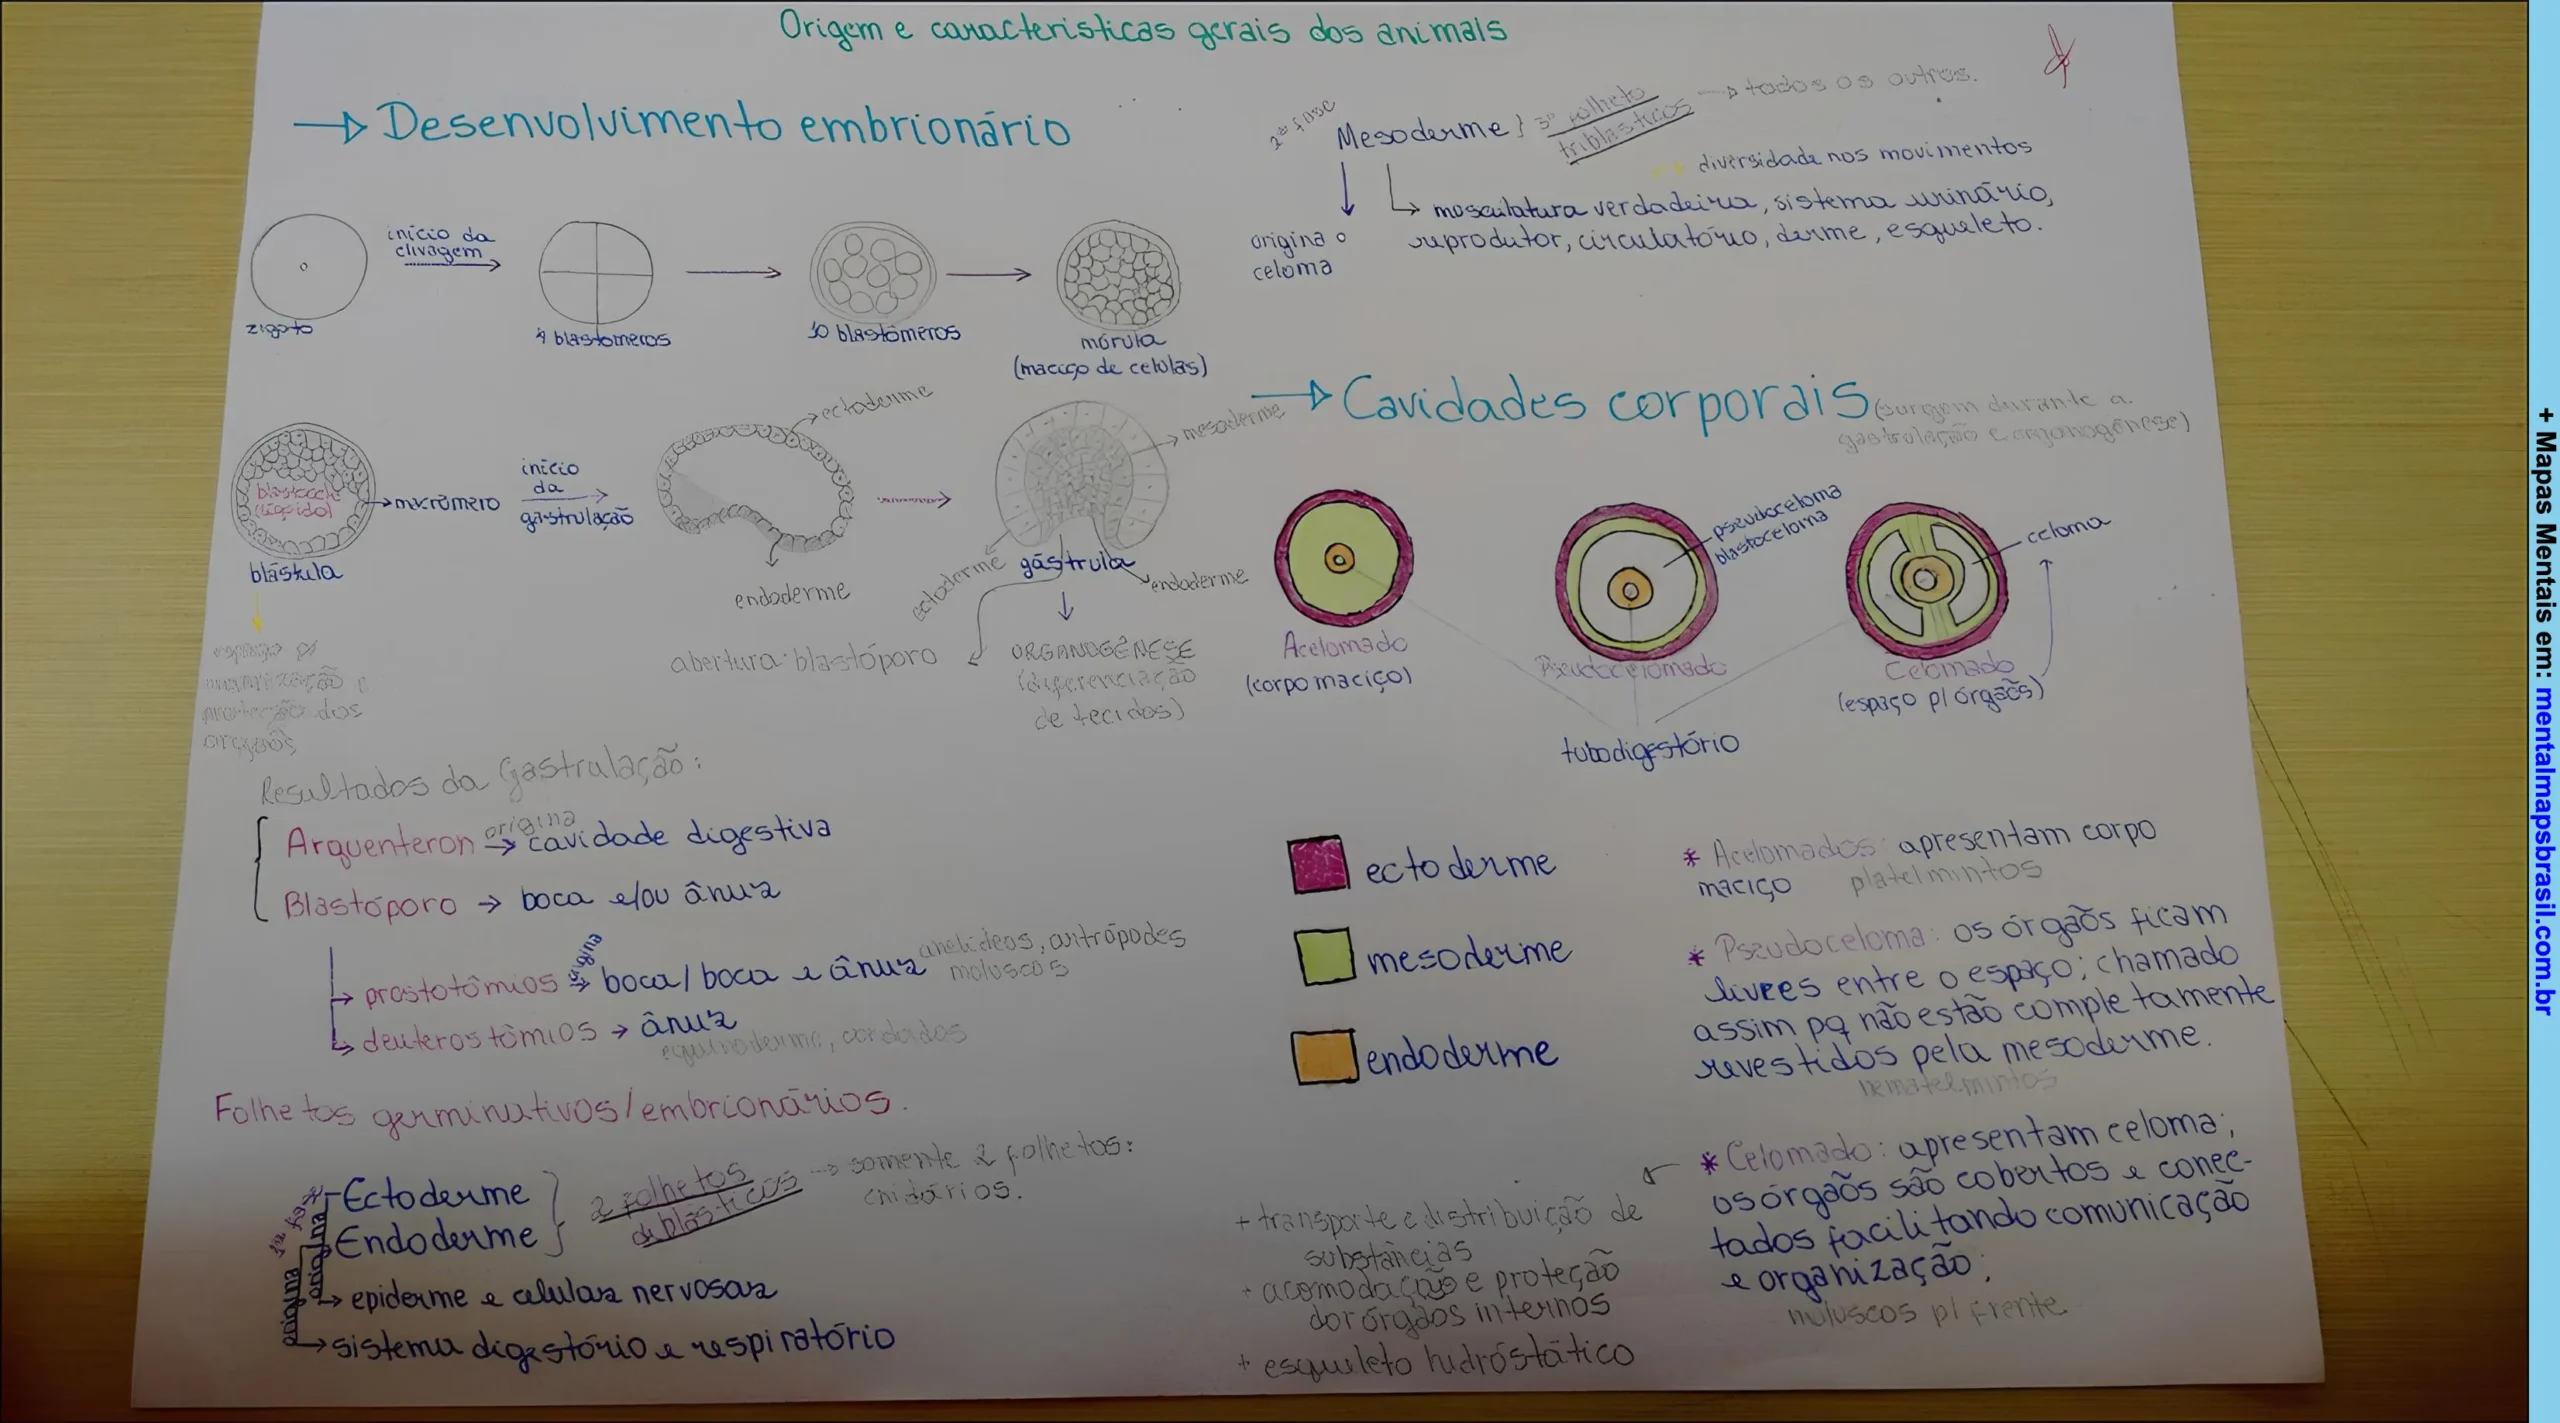 Origem e características gerais dos animais
→ Desenvolvimento embrionário
zigoto
início da
clivagem
4 blastomeros
10 blastômeros
mórula
(maciço de celulas)
blastocele
(líquido)
→ micrômero
blástula
início
da
gastrulação
ectoderme
endoderme
mesoderme
ectoderme
gástrula
endoderme
abertura: blastóporo
ORGANOGÊNESE
(diferenciação
de tecidos)
espaço p/
proteção dos
orgaõs
Resultados da Gastrulação:
Arquenteron → origina cavidade digestiva
Blastóporo → boca e/ou ânus
→ prostotômios → origina boca/boca e ânus anelídeos, artrópodes
moluscos
→ deuterostômios → ânus
equinoderma, cordados
Folhetos germinativos/embrionários.
1ª fase
Ectoderme
Endoderme
2 folhetos
diblásticos
→ somente 2 folhetos:
cnidários.
origina
origina
→ epiderme e celulas nervosas
→ sistema digestório e respiratório
2ª fase
Mesoderme } 3º folheto
triblasticos
→ todos os outros.
diversidade nos movimentos
→ musculatura verdadeira, sistema urinário,
reprodutor, circulatório, derme, esqueleto.
origina o
celoma
→ Cavidades corporais (surgem durante a
gastrulação e organogênese)
pseudoceloma
blastoceloma
celoma
Acelomado
(corpo maciço)
Pseudocelomado
Celomado
(espaço p/ órgaõs)
tubo digestório
ectoderme
mesoderme
endoderme
* Acelomados: apresentam corpo
maciço platelmintos
* Pseudoceloma: os órgaõs ficam
livres entre o espaço; chamado
assim pq não estão completamente
revestidos pela mesoderme.
nematelmintos
* Celomado: apresentam celoma;
os órgaõs são cobertos e conec-
tados facilitando comunicação
e organização;
moluscos p/ frente
+ transporte e distribuição de
substâncias
+ acomodação e proteção
dor órgãos internos
+ esqueleto hidróstático
+ Mapas Mentais em: mentalmapsbrasil.com.br